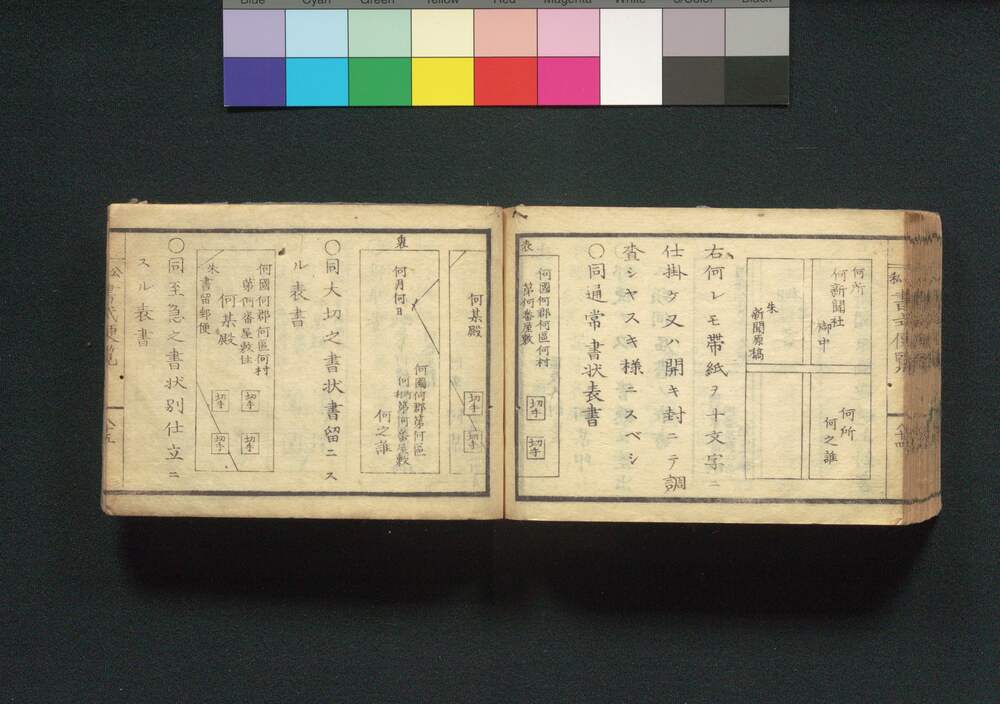 Blue Cyan Green Yellow Red Magenta White 3/Color Black
何所
何新聞社
御中
朱
新聞原稿
何所
何之誰
右何レモ帯紙ヲ十文字ニ
仕掛ケ又ハ開キ封ニテ調
査シヤスキ様ニスベシ
〇同通常書状表書
表
何國何郡何區何村
第何番屋敷
切手
切手
何某殿
切手
切手
裏
何月何日
何國何郡第何區
何村第何番屋敷
何之誰
〇同大切之書状書留ニス
ル表書
何國何郡何區何村
第何番屋敷住
何某殿
朱
書留郵便
切手
切手
切手
切手
〇同至急之書状別仕立ニ
スル表書